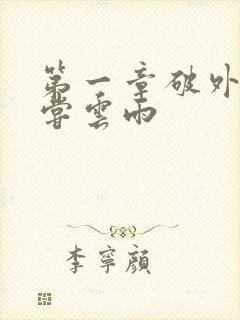 第一章破外
嘗雲雨
李寧顏